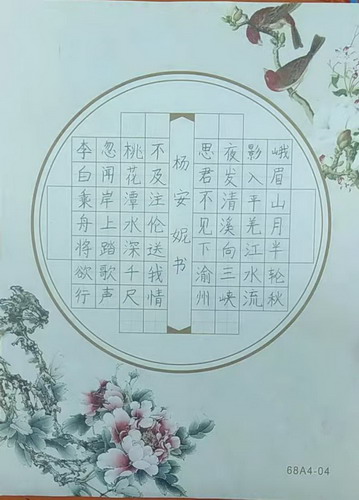 峨眉山月半轮秋
影入平羌江水流
夜发清溪向三峡
思君不见下渝州
李白乘舟将欲行
忽闻岸上踏歌声
桃花潭水深千尺
不及注伦送我情
杨安妮书
68A4-04